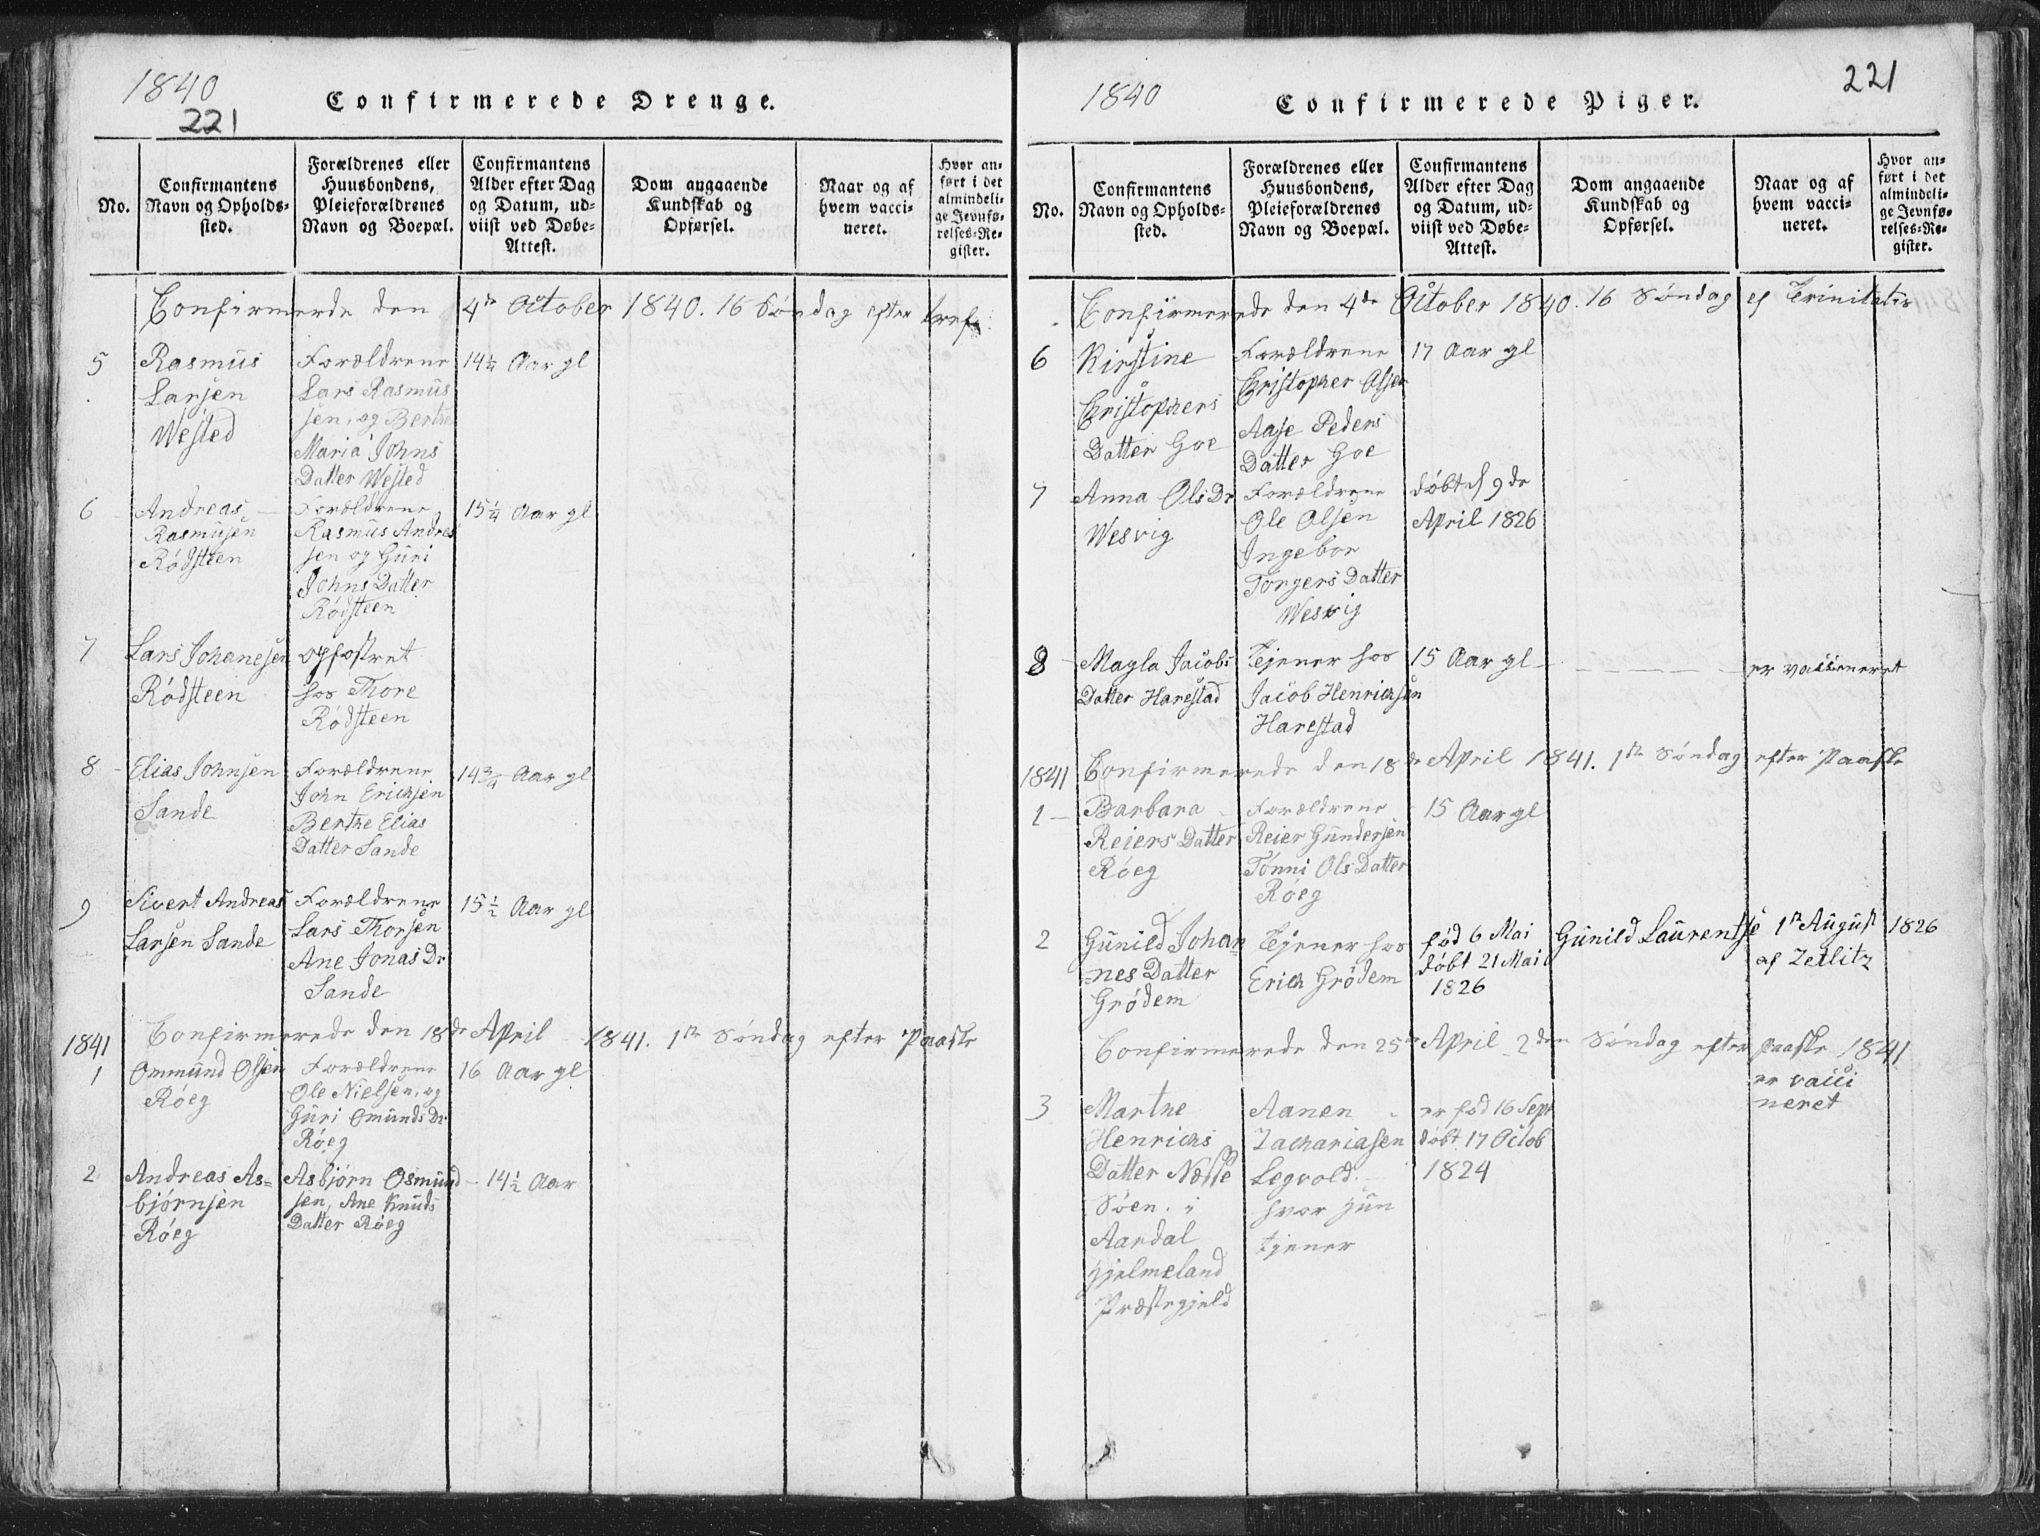 1840
221
Confirmerede Drenge.
No.
Confirmantens
Navn og Opholds-
sted.
Forældrenes eller
Huusbondens,
Pleieforældrenes
Navn og Boepæl.
Confirmantens
Alder efter Dag
og Datum, ud-
viist ved Døbe-
Attest.
Dom angaaende
Kundskab og
Opførsel.
Naar og af
hvem vacci-
neret.
Hvor an-
ført i det
almindeli-
ge Jevnfø-
relses-Re-
gister.
Confirmerede den 4de October 1840. 16 Søndag efter
5
Rasmus
Larsen
Wested
Forældrene
Lars Rasmus
sen, og Berthe
Maria Johns
Datter Wested
14¼ Aar gl
6
Andreas
Rasmusen
Rødsteen
Forældrene
Rasmus Andres
sen og Guri
Johns Datter
Rødsteen
15¼ Aar gl
7
Lars Johanesen
Rødsteen
opfostret
hos Thore
Rødsteen
8
Elias Johnsen
Sande
Forældrene
John Erichsen
Berthe Elias
Datter Sande
14¾ Aar gl
9
Sivert Andreas
Larsen Sande
Forældrene
Lars Thorsen
Ane Jonas Dr
Sande
15½ Aar gl
1841
Confirmerede den 18de April 1841. 1ste Søndag efter Paaske
1
Ommund Olsen
Røeg
Forældrene
Ole Nielsen, og
Guri Omunds Dr
Røeg
16 Aar gl
2
Andreas As=
bjørnsen
Røeg
Asbjørn Osmund
sen, Ane Knuds
Datter Røeg
14½ Aar
1840
221
Confirmerede Piger.
No.
Confirmantens
Navn og Opholds-
sted.
Forældrenes eller
Huusbondens,
Pleieforældrenes
Navn og Boepæl.
Confirmantens
Alder efter Dag
og Datum, ud-
viist ved Døbe-
Attest.
Dom angaaende
Kundskab og
Opførsel.
Naar og af
hvem vacci-
neret.
Hvor an-
ført i det
almindeli-
ge Jevnfø-
relses-Re-
gister.
Confirmerede den 4de October 1840. 16 Søndag ef Trinitatis
6
Kirstine
Christophers
Datter Goe
Forældrene
Christopher Olsen
Aase Peders
Datter Goe
17 Aar gl
7
Anna Ols Dr
Wesvig
Forældrene
Ole Olsen
Ingebor
Torgers Datter
Wesvig
døbt d 9de
April 1826
8
Magla Jacobs
Datter Harestad
Tjener hos
Jacob Henrichsen
Harestad
15 Aar gl
er vacceneret
1841
Confirmerede den 18de April 1841. 1ste Søndag efter Paaske
1
Barbara
Reiers Datter
Røeg
Forældrene
Reier Gundersen
Tønni Ols Datter
Røeg
15 Aar gl
2
Gunild Johan
nes Datter
Grødem
Tjener hos
Erich Grødem
fød 6 Mai
døbt 21 Mai
1826
Gunild Laurentse
1ste August 1826
af Zetlitz
Confirmerede den 25de April 2den Søndag efter paaske 1841
3
Marthe
Henrichs
Datter Nesse
Søen. i
Aardal
Hjelmeland
Præstegjeld
Aanen
Zachariasen
Legvold.
hvor hun
tjener
er fød 16 Sept
døbt 17 Octob
1824
er vacci
neret